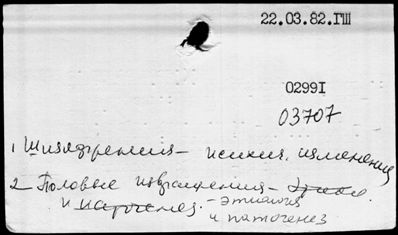 22.03.82.ГШ
0299I
03707
1 Шизофрения – психич. изменения
2 – Половые извращения – этиол.
и патогенез. – этиология
и патогенез